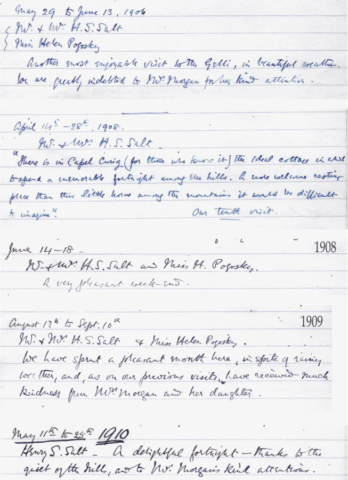 May 29 to June 13, 1906
Mr. & Mrs. H.S. Salt
Miss Helen Pogosky
Another most enjoyable visit to the Gelli, in beautiful weather.
We are greatly indebted to Mrs. Morgan for her kind attention.
April 14th - 28th, 1908.
Mr. & Mrs. H. S. Salt.
"There is in Capel Curig (for those who know it) the ideal cottage in which
to spend a memorable fortnight among the hills. A more welcome resting
place than this little house among the mountains it would be difficult
to imagine".
Our tenth visit.
June 14-18 - " " 1908
Mr. & Mrs. H. S. Salt and Miss H. Pogosky.
A very pleasant week-end.
1909
August 12th to Sept. 10th
Mr. & Mrs. H. S. Salt & Miss Helen Pogosky.
We have spent a pleasant month here, in spite of rainy
weather, and, as on our previous visits, have received much
kindness from Mrs Morgan and her daughter.
May 11th to 25th 1910
Henry S. Salt. A delightful fortnight - thanks to the
quiet of the hills, and to Mrs. Morgan's kind attentions.